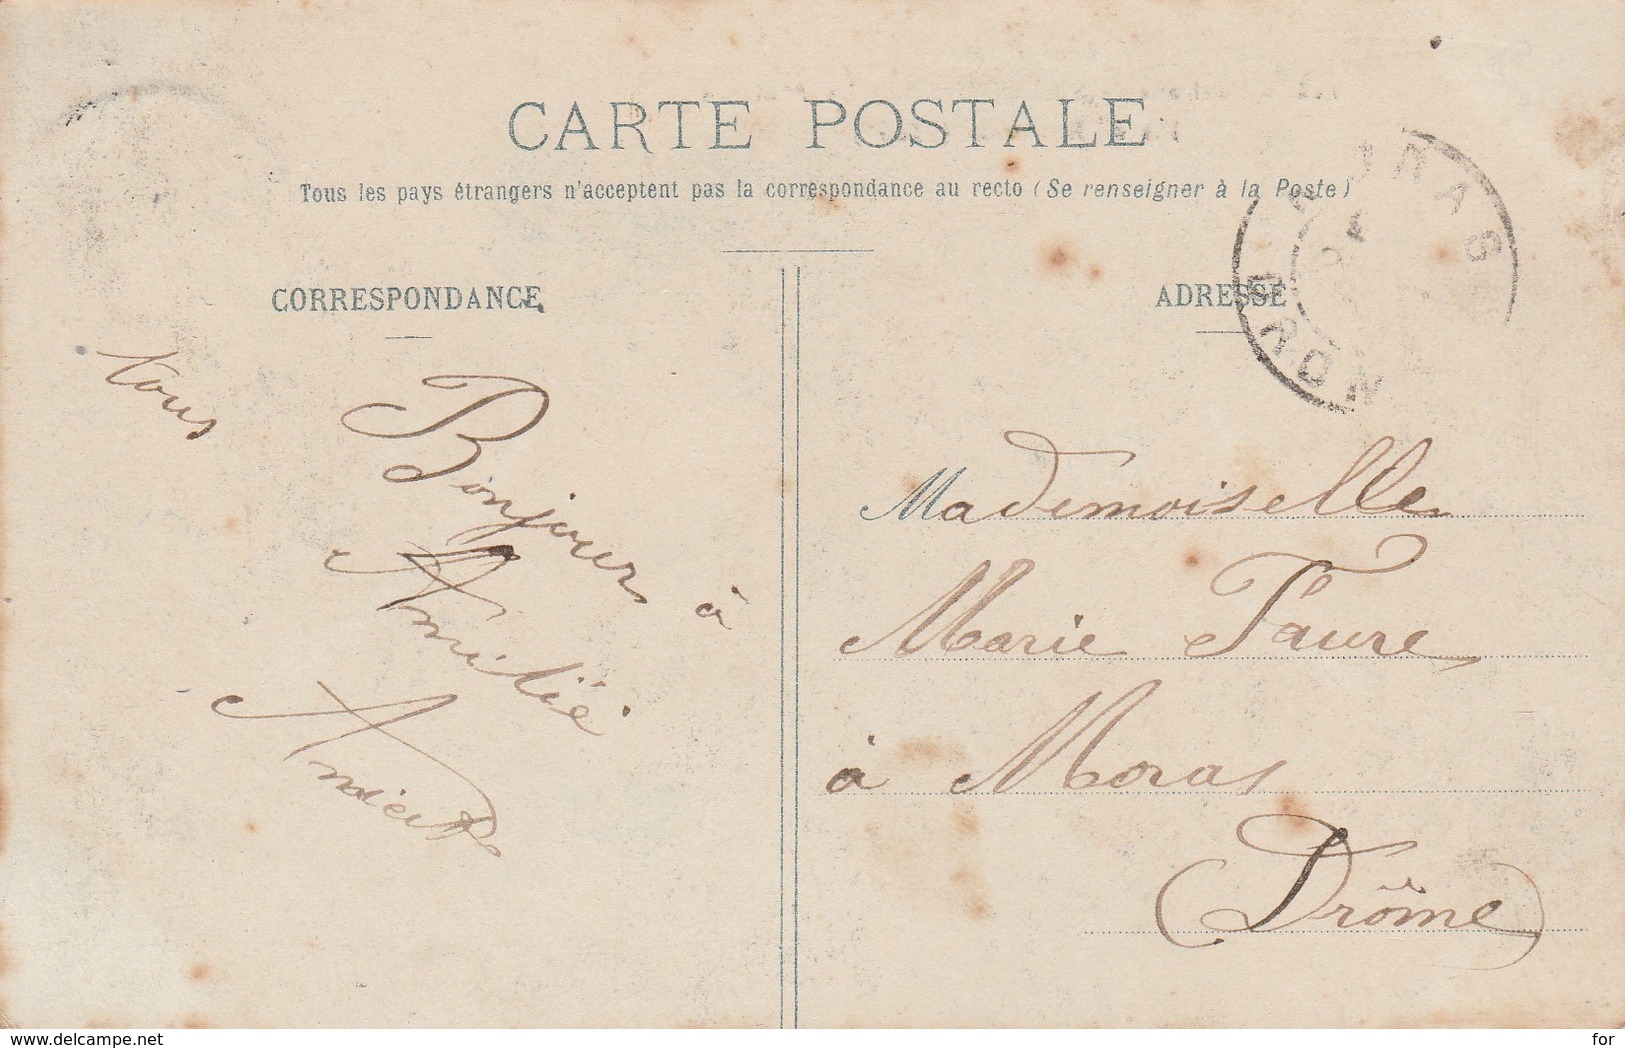 CARTE POSTALE
Tous les pays étrangers n'acceptent pas la correspondance au recto (Se renseigner à la Poste)
CORRESPONDANCE
Bonjour à
tous
Amélie
ADRESSE
MORAS
DROM
Mademoiselle
Marie Faure
à Moras
(Drôme)
www.delcampe.net
for